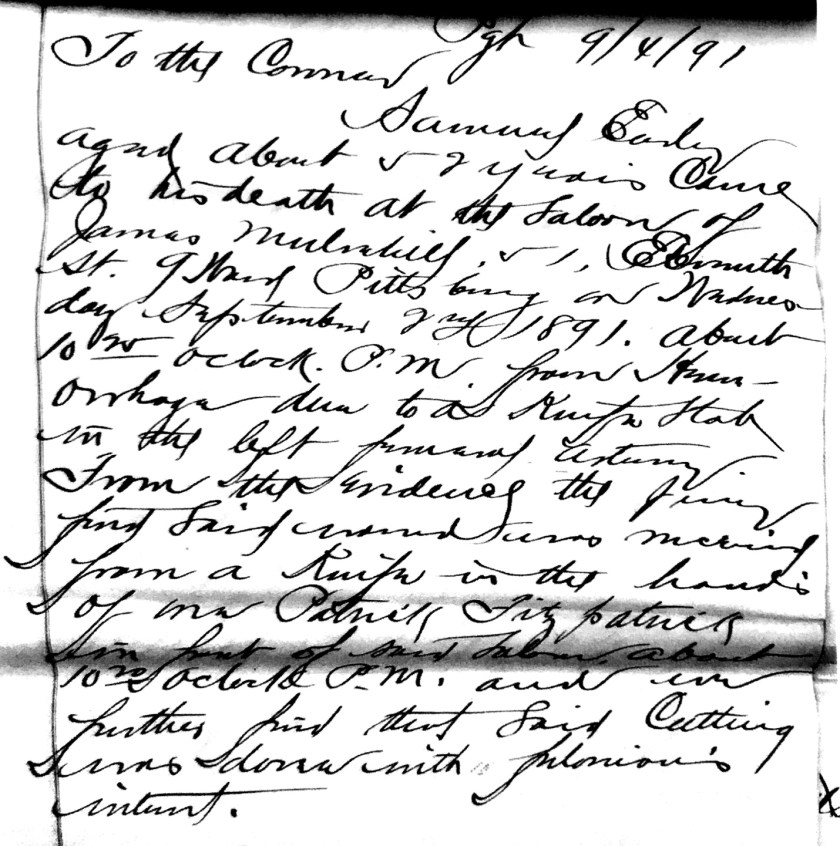 Pgh 9/4/91
To the Coroner
Samuel Early
aged about 52 years Came
to his death at the Saloon of
James Mulvahill, 51,
St. 9 Ward Pittsburg on Wednes
day September 2nd 1891. about
10 oclock. P.M. from Hem-
orrhage due to a Knife Stab
in the left femoral artery
From the evidence the jury
find Said wound was received
from a Knife in the hands
of one Patrick Fitzpatrick
in front of said Saloon, about
10 oclock P.M. and we
further find that Said Cutting
was done with felonious
intent.